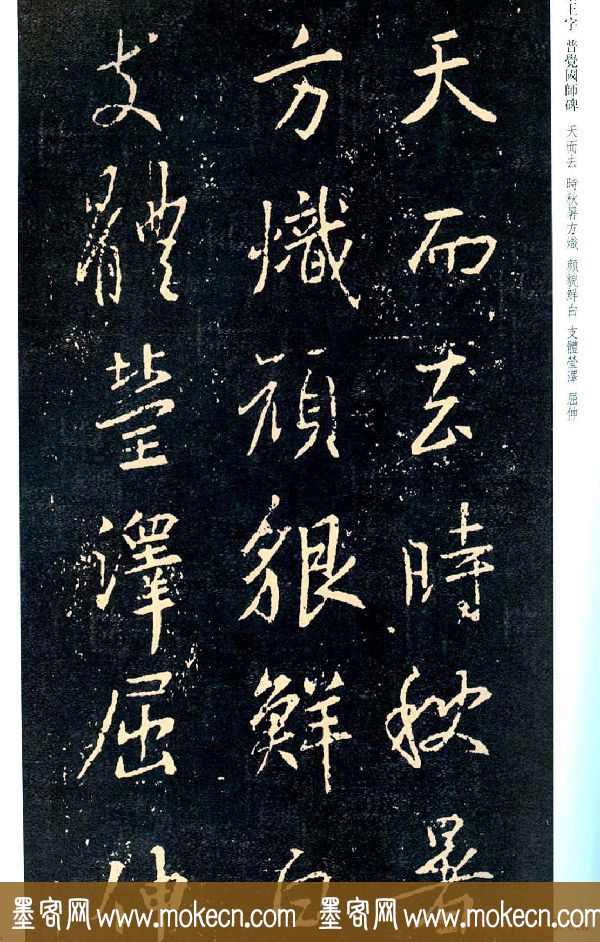 天而去時秋暑
方熾顔貌鮮白
支體瑩澤屈伸
王字 普覺國師碑 天而去 時秋暑方熾 顔貌鮮白 支體瑩澤 屈伸
墨客网 www.mokecn.com 墨客网 www.mokecn.com